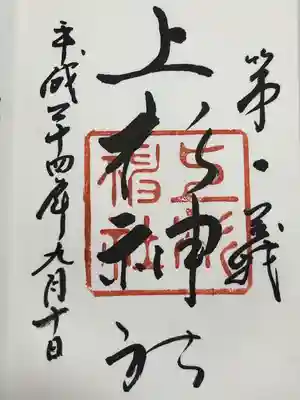 第一義
上杉神社
上杉神社
平成二十四年九月十日